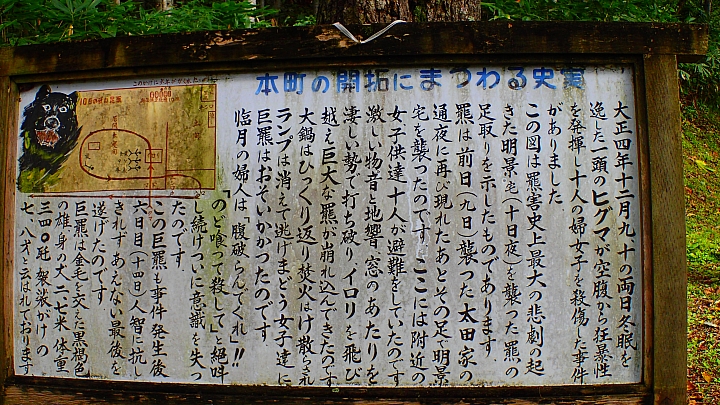 本町の開拓にまつわる史実
大正四年十二月九、十の両日冬眠を
逸した一頭のヒグマが空腹から狂暴性
を発揮し十人の婦女子を殺傷した事件
がありました
この図は羆害史上最大の悲劇の起
きた明景宅(十日夜)を襲った羆の
足取りを示したものであります
羆は前日(九日)襲った太田家の
通夜に再び現れたあとその足で明景
宅を襲ったのです ここには附近の
女子供達十人が避難をしていたのです
激しい物音と地響、窓のあたりを
凄しい勢で打ち破り、イロリを飛び
越え巨大な羆が崩れ込んできたのです
大鍋はひっくり返り焚火はけ散らされ
ランプは消えて逃げまどう女子達に
巨羆はおそいかかったのです
臨月の婦人は「腹破らんでくれ」!!
「のど喰って殺して」と絶叫
し続けついに意識を失っ
たのです
この巨羆も事件発生後
六日目(十四日)人智に抗し
きれずあえない最後を
遂げたのです
巨羆は金毛を交えた黒褐色
の雄身の丈二、七米 体重
三四〇瓩 袈裟がけの
七、八才と云はれております